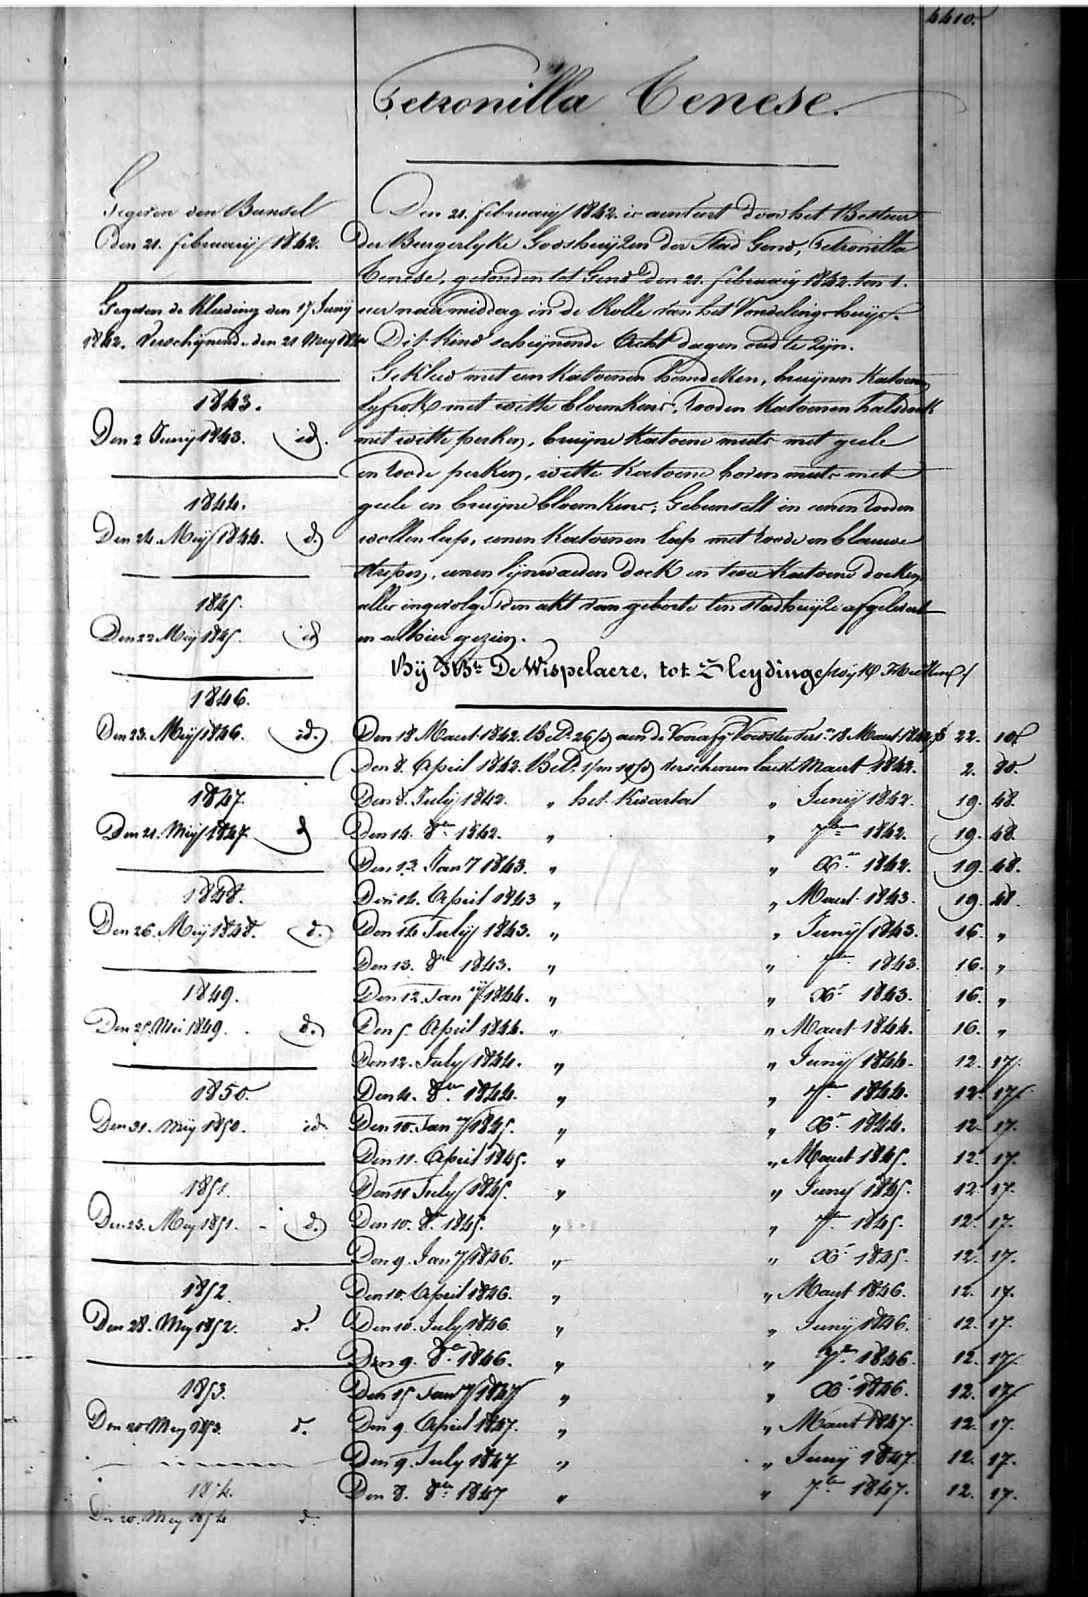 4410.
Petronilla Cenese.
Gegeven den Bunsel
den 21. february 1842.
Gegeven de Kleeding den 17 Juny
1842. Verschynende den 21 Mey 1842
1843.
Den 2 Juny 1843. id.
1844.
Den 24. Mey 1844. d.
1845.
Den 22 Mey 1845. id
1846.
Den 23. Mey 1846. id.
1847.
Den 21. Mey 1847. d
1848.
Den 26. Mey 1848. d.
1849.
Den 25 Mei 1849. d.
1850.
Den 31. Mey 1850. id
1851.
Den 23. Mey 1851. d.
1852.
Den 28. Mey 1852. d.
1853.
Den 20 Mey 1853. d.
1854.
Den 20. Mey 1854 d.
Den 21. february 1842. is aenveert door het Bestuer
der Burgerlyke Godshuyzen der Stad Gend, Petronilla
Cenese, gevonden tot Gend den 21. february 1842. ten 1.
uer naermiddag in de Rolle van het Vondelinghuys.
Dit Kind scheynende Acht dagen oud te zyn.
Gekleed met een Katoenen hemdeken, bruynen Katoenen
lyfrok met witte bloemkens, rooden Katoenen halsdoek
met witte perken, bruyne Katoene muts met geele
en roode perken, witte Katoene boven muts met
geele en bruyne bloemkens; Gebunselt in eenen rooden
wollen lap, eenen Katoenen lap met roode en blauwe
strepen, eenen lynwaeden doek en twee Katoene doeken
alles ingevolge den akt van geboorte ten stadhuyze afgelevert
en alhier gezien.
By De Wispelaere, tot Sleydinge
Den 18 Maert 1842. Bet. 26 aen de Voorafg. Voedster Vers. 18 Maert 1842. 22. 10
Den 8. April 1842. Bet. verschenen laest Maert 1842. 2. 80.
Den 8. July 1842. " het Kwartael " Juny 1842. 19. 48.
Den 14. 8er 1842. " " 7ber 1842. 19. 48.
Den 13. Jany 1843. " " Xer 1842. 19. 48.
Den 14. April 1843 " " Maert 1843. 19. 48.
Den 14 July 1843. " " Juny 1843. 16. "
Den 13. 8er 1843. " " 7er 1843. 16. "
Den 12. Jany 1844. " " Xr 1843. 16. "
Den 5. April 1844. " " Maert 1844. 16. "
Den 12. July 1844. " " Juny 1844. 12. 17.
Den 4. 8er 1844. " " 7er 1844. 12. 17.
Den 10. Jany 1845. " " Xr 1844. 12. 17.
Den 11. April 1845. " " Maert 1845. 12. 17.
Den 11 July 1845. " " Juny 1845. 12. 17.
Den 10. 8er 1845. " " 7er 1845. 12. 17.
Den 9. Jany 1846. " " Xr 1845. 12. 17.
Den 10. April 1846. " " Maert 1846. 12. 17.
Den 10. July 1846. " " Juny 1846. 12. 17.
Den 9. 8er 1846. " " 7er 1846. 12. 17.
Den 15 Jany 1847 " " Xr 1846. 12. 17.
Den 9. April 1847. " " Maert 1847. 12. 17.
Den 9. July 1847 " " Juny 1847. 12. 17.
Den 8. 8ber 1847 " " 7er 1847. 12. 17.